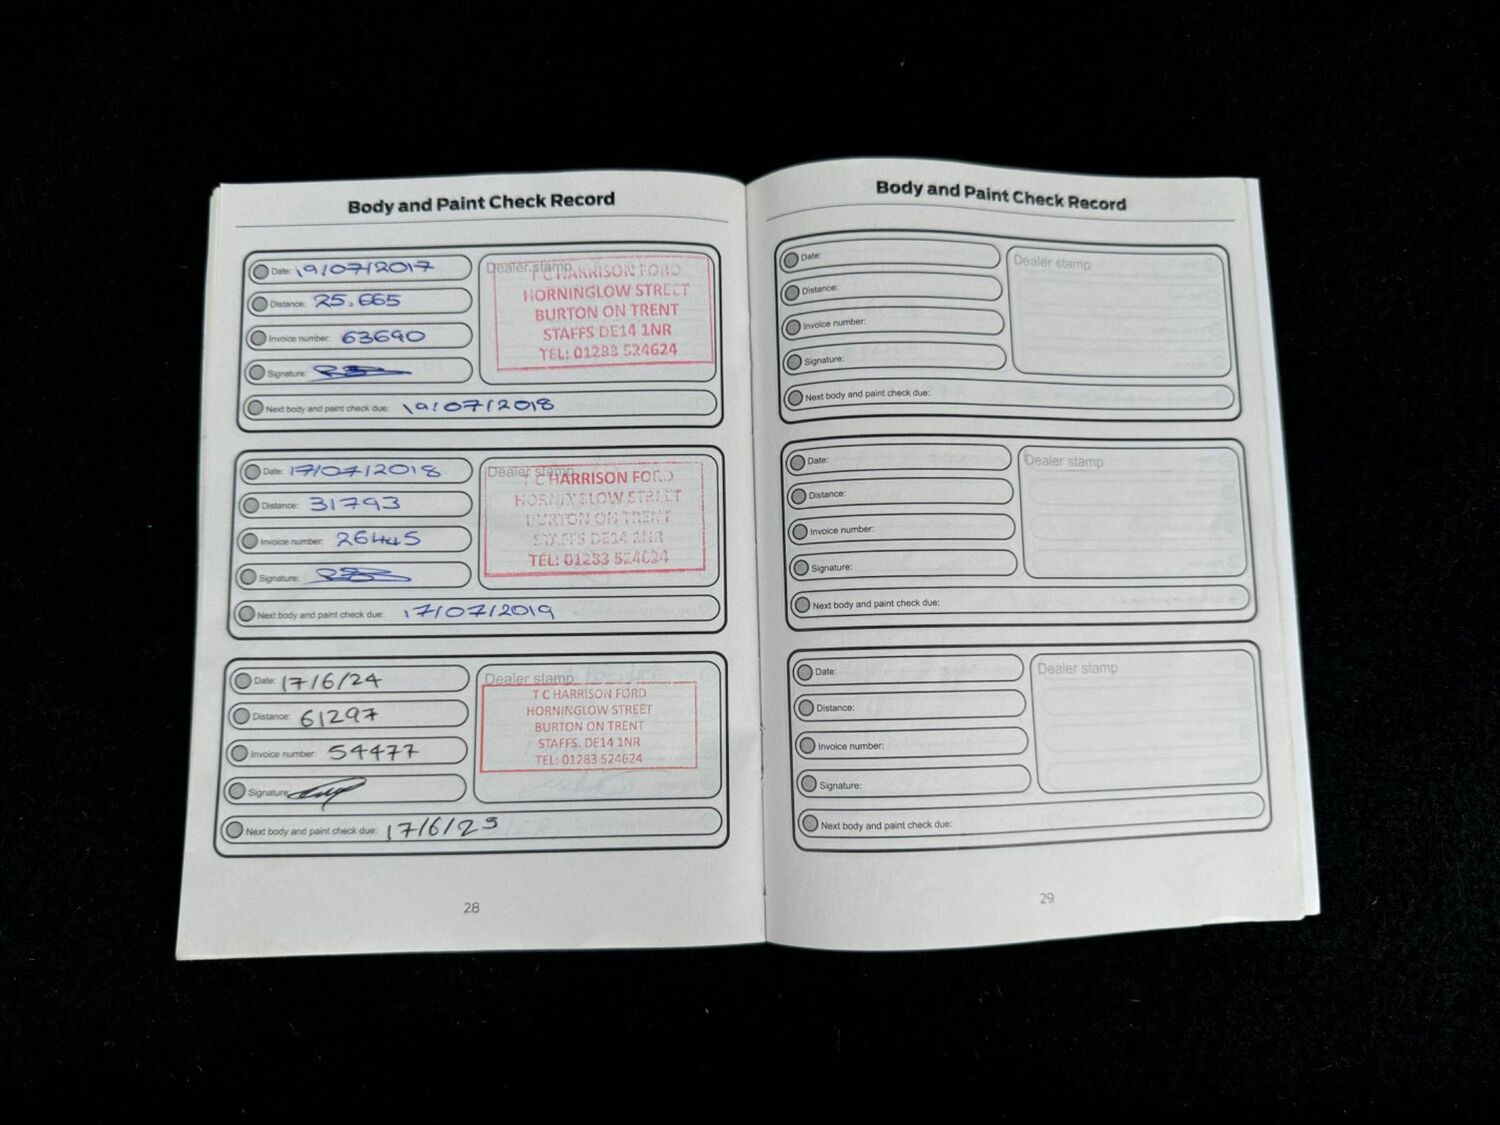 Body and Paint Check Record
Date: 19/07/2017
Distance: 25.665
Invoice number: 63690
Signature:
Next body and paint check due: 19/07/2018
Dealer stamp
T C HARRISON FORD
HORNINGLOW STREET
BURTON ON TRENT
STAFFS DE14 1NR
TEL: 01283 524624
Date: 17/07/2018
Distance: 31793
Invoice number: 26445
Signature:
Next body and paint check due: 17/07/2019
Dealer stamp
T C HARRISON FORD
HORNINGLOW STREET
BURTON ON TRENT
STAFFS DE14 1NR
TEL: 01283 524624
Date: 17/6/24
Distance: 61297
Invoice number: 54477
Signature:
Next body and paint check due: 17/6/25
Dealer stamp
T C HARRISON FORD
HORNINGLOW STREET
BURTON ON TRENT
STAFFS. DE14 1NR
TEL: 01283 524624
28
Body and Paint Check Record
Date:
Distance:
Invoice number:
Signature:
Next body and paint check due:
Dealer stamp
Date:
Distance:
Invoice number:
Signature:
Next body and paint check due:
Dealer stamp
Date:
Distance:
Invoice number:
Signature:
Next body and paint check due:
Dealer stamp
29